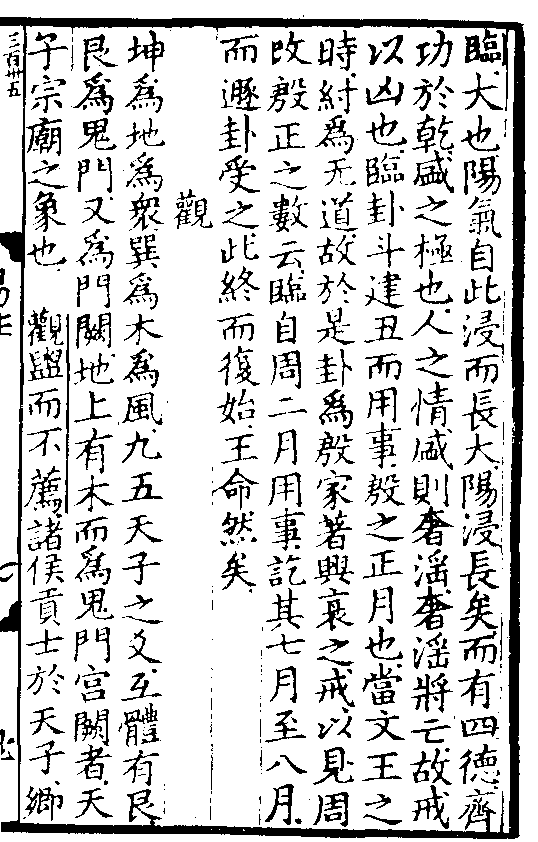 臨大也陽氣自此浸而長大陽浸長矣而有四德齊
功於乾盛之極也人之情盛則奢淫奢淫將亡故戒
以凶也臨卦斗建丑而用事殷之正月也當文王之
時紂爲无道故於是卦爲殷家著興衰之戒以見周
改殷正之數云臨自周二月用事訖其七月至八月
而遯卦受之此終而復始王命然矣
觀
坤爲地爲衆巽爲木爲風九五天子之爻互體有艮
艮爲鬼門又爲門闕地上有木而爲鬼門宫闕者天
子宗廟之象也 觀盥而不薦諸侯貢士於天子鄉
三百卅五